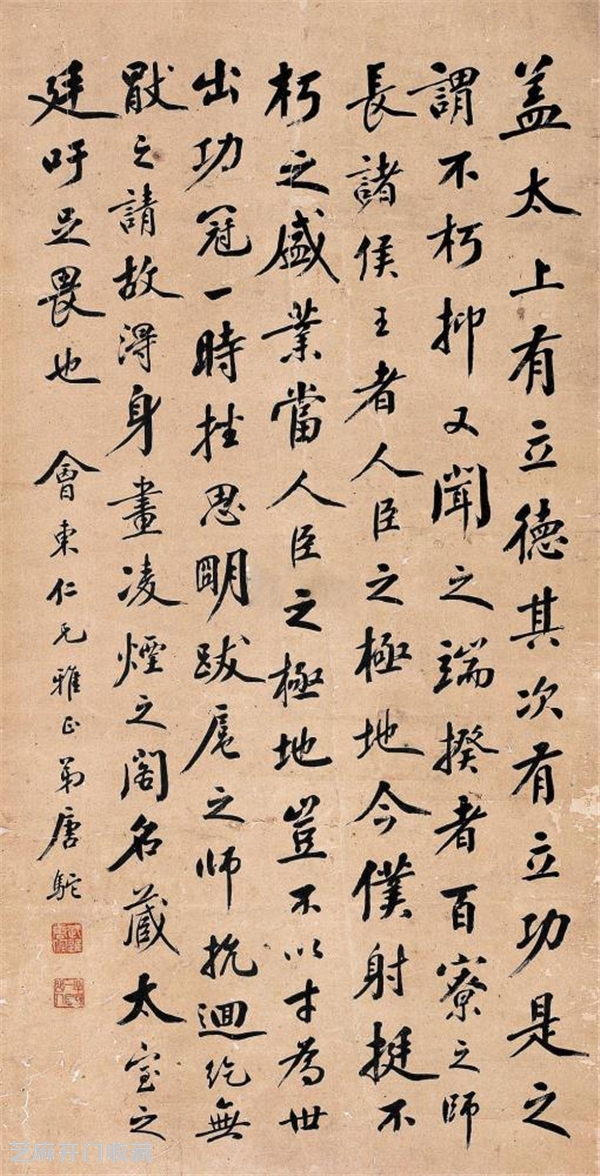 盖太上有立德其次有立功是之
謂不朽抑又聞之端揆者百寮之師
長諸侯王者人臣之極地今僕射挺不
朽之盛業當人臣之極地豈不以才為世
出功冠一時挫思明跋扈之師抗迴紇無
猒之請故得身畫凌煙之閣名藏太室之
廷吁足畏也 會東仁兄雅正弟唐駝